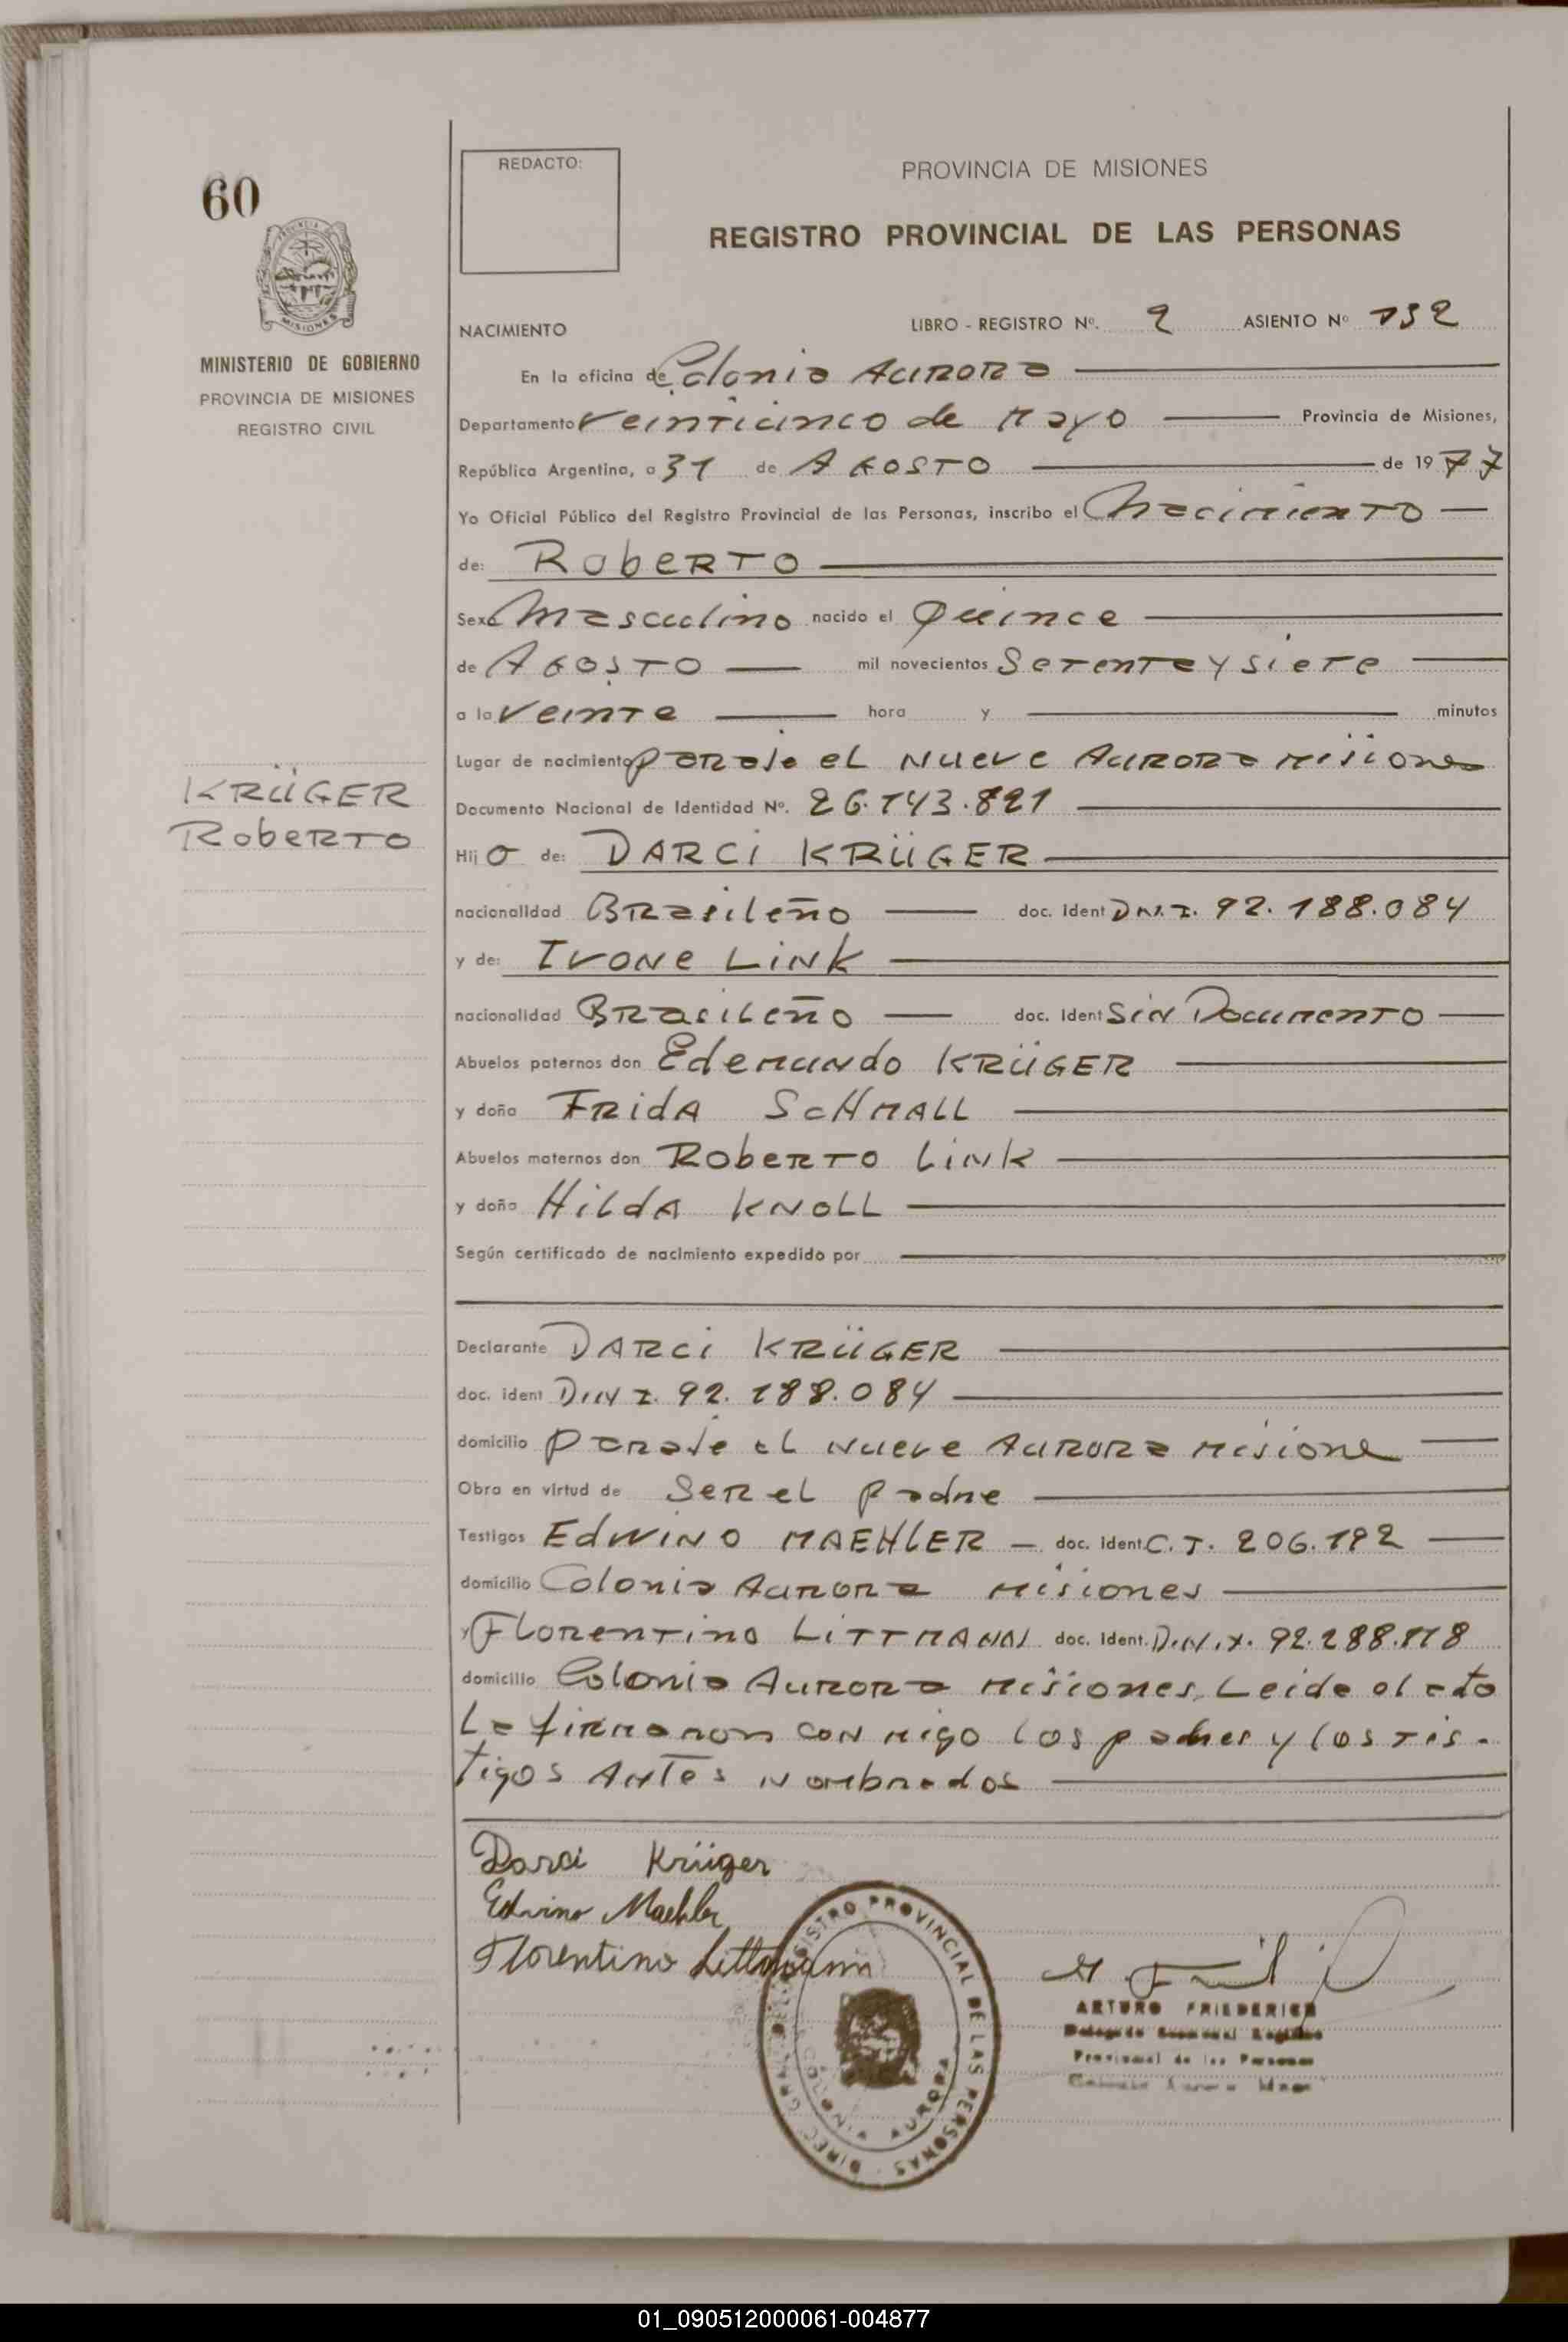 60
REDACTO:
PROVINCIA DE MISIONES
REGISTRO PROVINCIAL DE LAS PERSONAS
MISIONES
MINISTERIO DE GOBIERNO
PROVINCIA DE MISIONES
REGISTRO CIVIL
NACIMIENTO LIBRO - REGISTRO Nº. 2 ASIENTO Nº 132
En la oficina de Colonia Aurora
Departamento Veinticinco de Mayo Provincia de Misiones,
República Argentina, a 31 de Agosto de 1977
Yo Oficial Público del Registro Provincial de las Personas, inscribo el Nacimiento
de: Roberto
Sexo Masculino nacido el Quince
de Agosto mil novecientos Setenta y siete
a la Veinte hora y minutos
Lugar de nacimiento paraje el Nueve Aurora Misiones
KRÜGER
Roberto
Documento Nacional de Identidad Nº. 26.143.821
Hijo de: DARCI KRÜGER
nacionalidad Brasileño doc. Ident D.N.I. 92.188.084
y de: IVONE LINK
nacionalidad Brasileño doc. Ident Sin Documento
Abuelos paternos don Edemundo KRÜGER
y doña FRIDA SCHMALL
Abuelos maternos don Roberto Link
y doña HILDA KNOLL
Según certificado de nacimiento expedido por
Declarante DARCI KRÜGER
doc. ident D.N.I. 92.188.084
domicilio paraje el Nueve Aurora Misione
Obra en virtud de Ser el padre
Testigos EDWINO MAEHLER doc. ident. C.I. 206.192
domicilio Colonia Aurora Misiones
y Florentino LITTMANN doc. Ident. D.N.I. 92.288.118
domicilio Colonia Aurora Misiones, Leida el acto
La firmaron con migo los padres y los tes-
tigos Antes Nombrados
Darci Krüger
Edwino Maehler
Florentino Littmann
DIREC. GRAL. DEL REGISTRO PROVINCIAL DE LAS PERSONAS
COLONIA AURORA
ARTURO FRIEDERICH
Provincial de las Personas
01_090512000061-004877